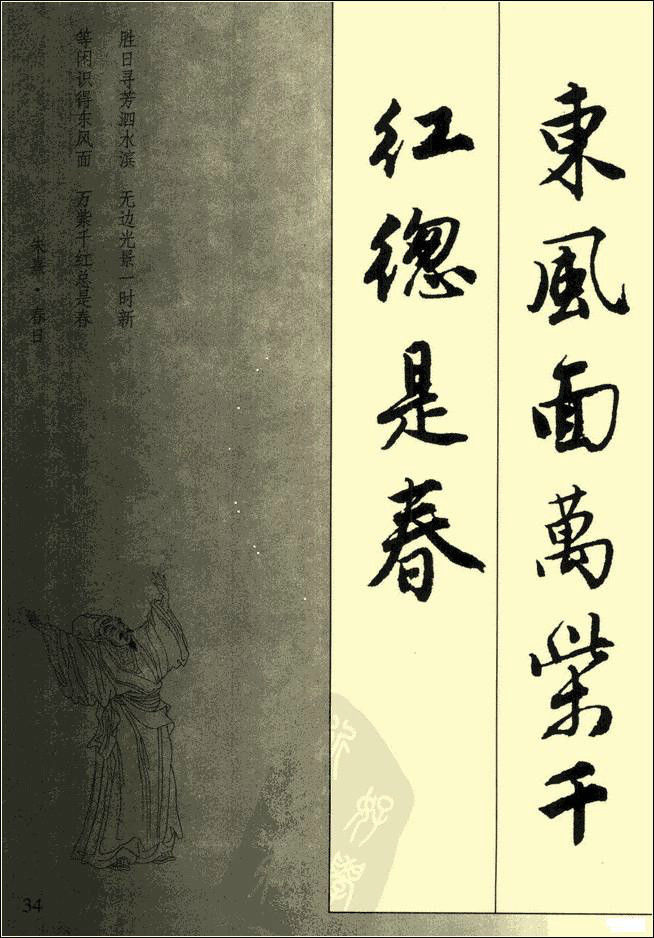 東風面萬紫千
紅總是春
胜日寻芳泗水滨 无边光景一时新
等闲识得东风面 万紫千红总是春
朱熹·春日
34